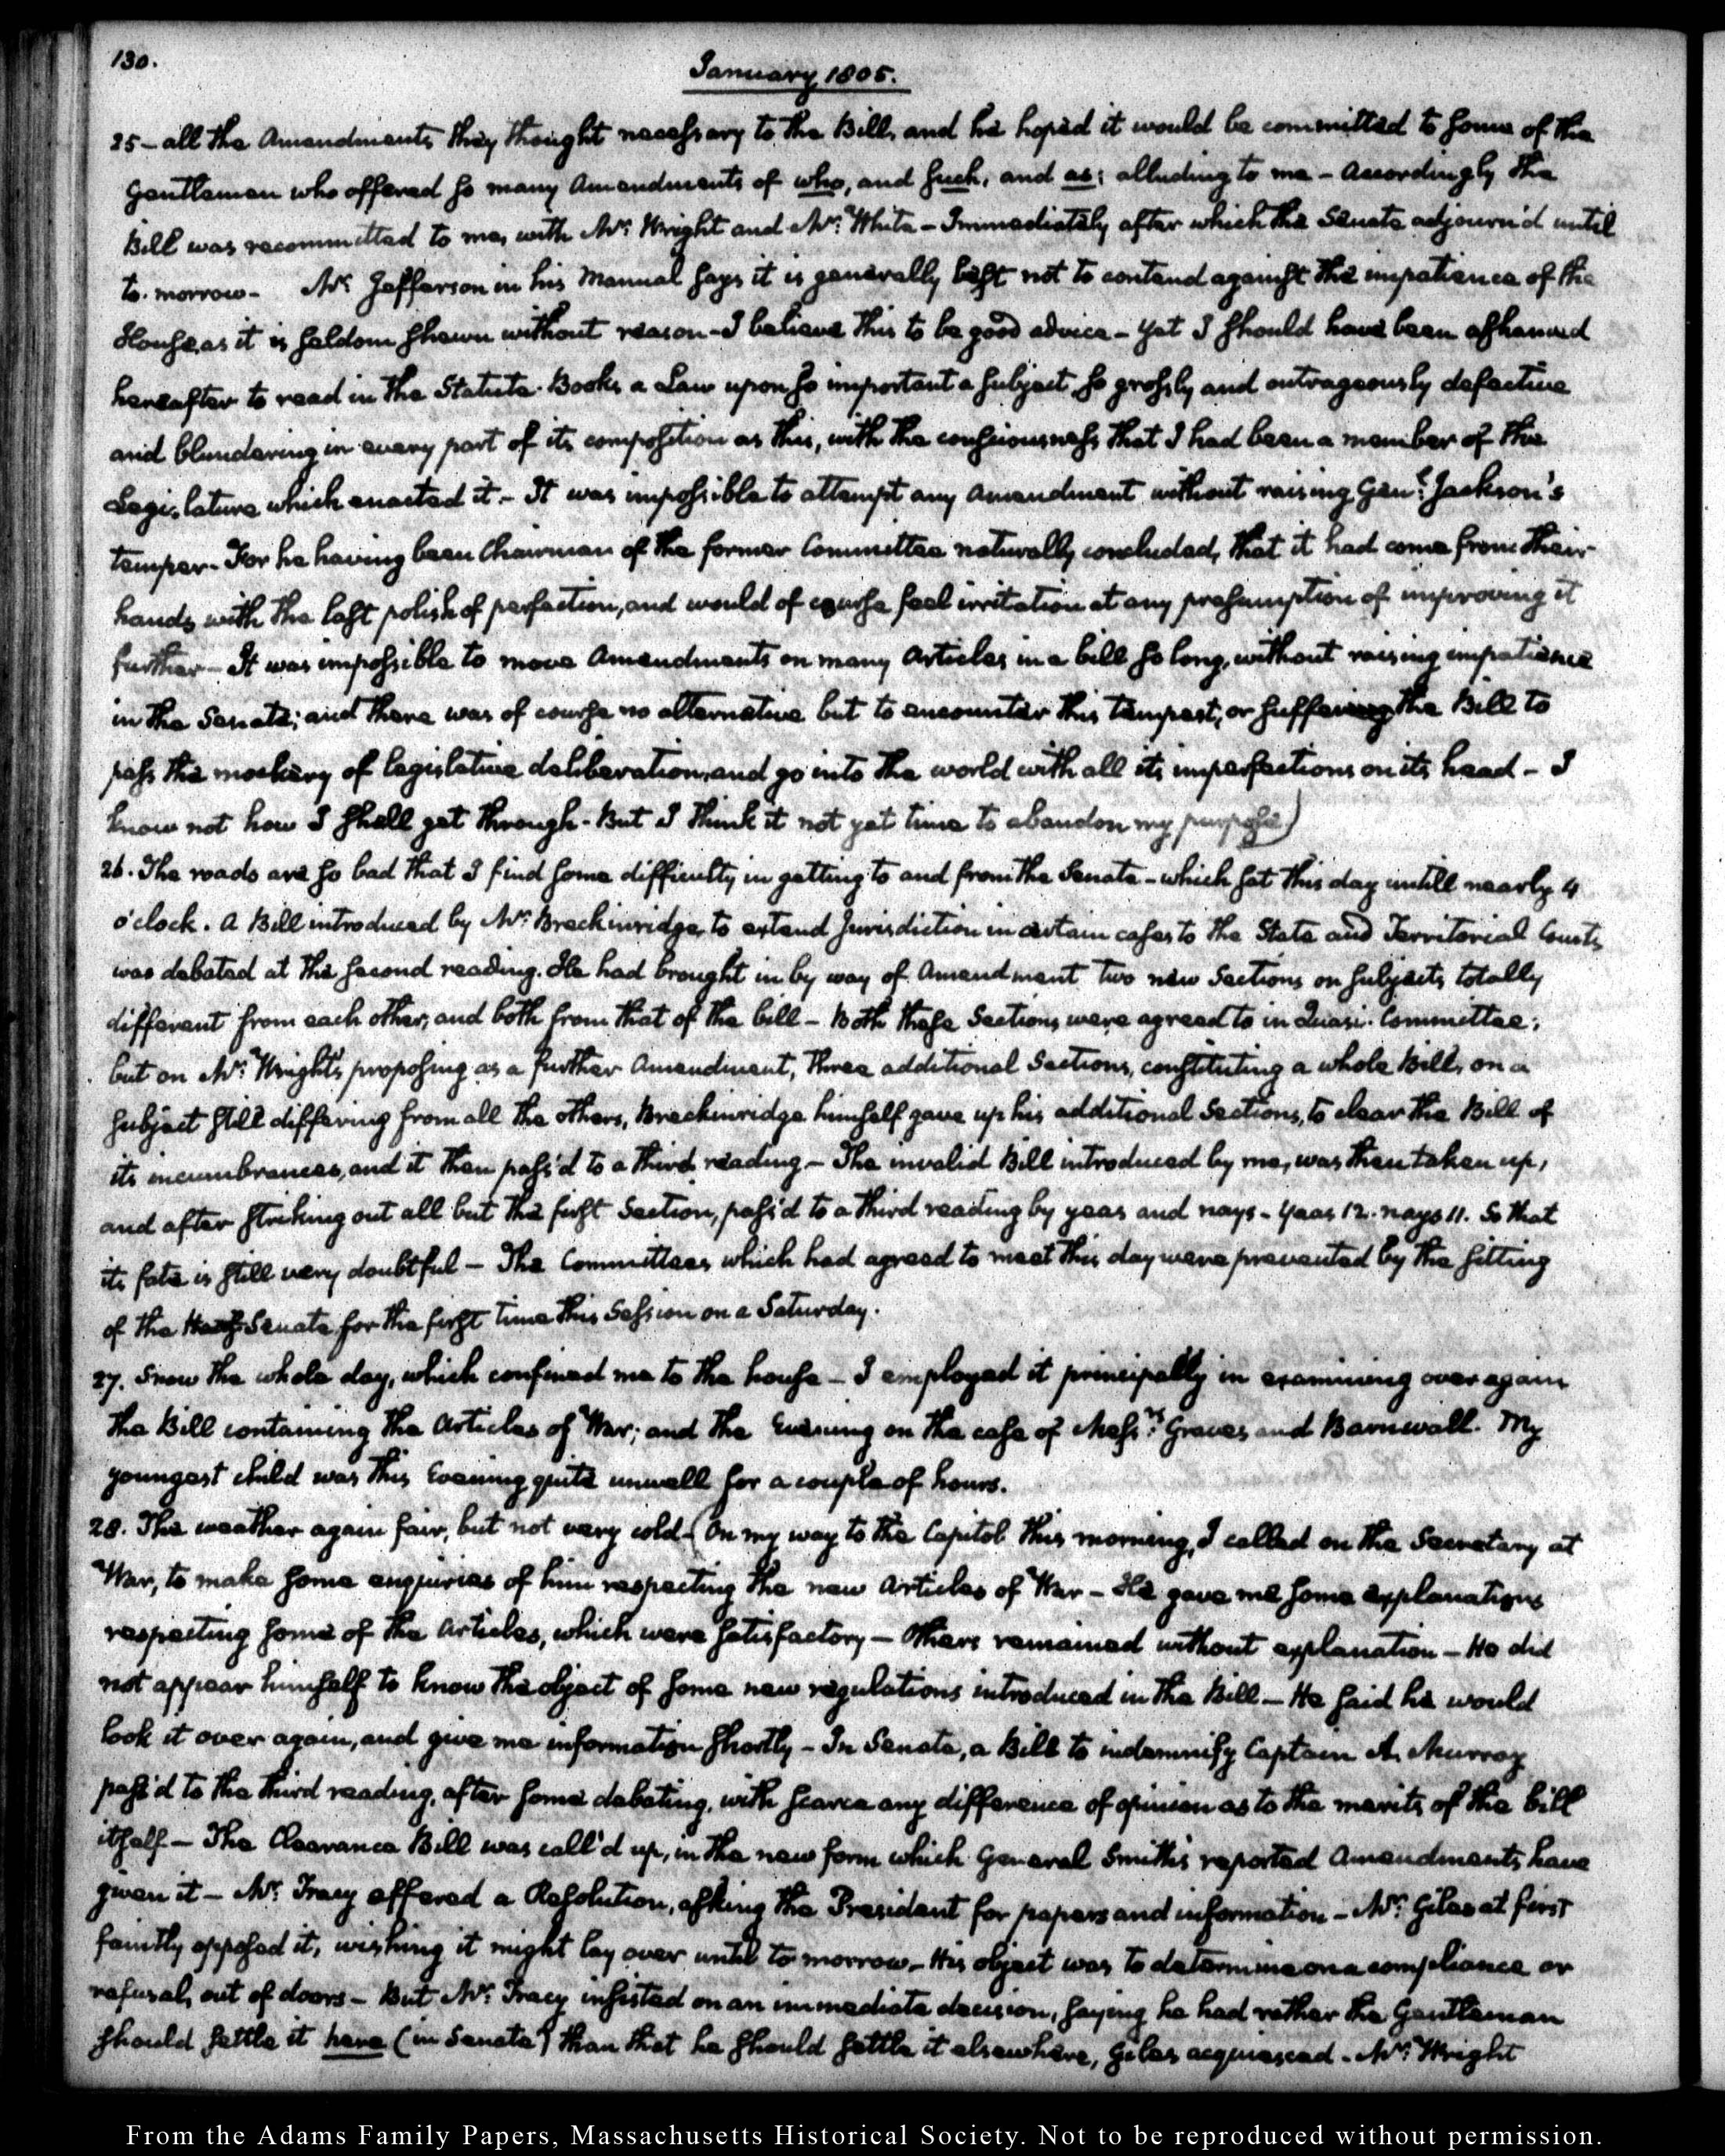 130.
January 1805.
25 - all the Amendments they thought necessary to the Bill, and he hoped it would be committed to some of the
Gentlemen who offered so many Amendments of who, and such, and as; alluding to me - Accordingly the
Bill was recommitted to me, with Mr. Wright and Mr. White - Immediately after which the Senate adjourn'd until
to-morrow - Mr. Jefferson in his Manual says it is generally best not to contend against the impatience of the
House, as it is seldom shewn without reason - I believe this to be good advice - yet I should have been ashamed
hereafter to read in the Statute-Books a Law upon so important a subject, so grossly and outrageously defective
and blundering in every part of its composition as this, with the consciousness that I had been a member of the
Legislature which enacted it - It was impossible to attempt any Amendment without raising Genl. Jackson's
temper - For he having been Chairman of the former Committee naturally concluded, that it had come from their
hands with the last polish of perfection, and would of course feel irritation at any presumption of improving it
further - It was impossible to move Amendments on many Articles in a bill so long, without raising impatience
in the Senate; and there was of course no alternative but to encounter this tempest, or suffering the Bill to
pass the mockery of legislative deliberation, and go into the world with all its imperfections on its head - I
know not how I shall get through - But I think it not yet time to abandon my purpose)
26. The roads are so bad that I find some difficulty in getting to and from the Senate - which sat this day untill nearly 4
o'clock. A Bill introduced by Mr. Breckinridge, to extend Jurisdiction in certain cases to the State and Territorial Courts
was debated at the second reading. He had brought in by way of Amendment two new Sections on subjects totally
different from each other, and both from that of the bill - Both these Sections were agreed to in Quasi-Committee;
but on Mr. Wright's proposing as a further Amendment, three additional Sections, constituting a whole Bill, on a
subject still differing from all the others, Breckinridge himself gave up his additional Sections, to clear the Bill of
its incumbrances, and it then pass'd to a third reading - The invalid Bill introduced by me, was then taken up,
and after striking out all but the first Section, pass'd to a third reading by yeas and nays - Yeas 12. nays 11. So that
its fate is still very doubtful - The Committees which had agreed to meet this day were prevented by the sitting
of the Senate for the first time this Session on a Saturday.
27. Snow the whole day, which confined me to the house - I employed it principally in examining over again
the Bill containing the Articles of War; and the Evening on the case of Messrs. Graves and Barnewall. My
youngest child was this Evening quite unwell for a couple of hours.
28. The weather again fair, but not very cold - (On my way to the Capitol this morning, I called on the Secretary at
War, to make some enquiries of him respecting the new Articles of War - He gave me some explanations
respecting some of the Articles, which were satisfactory - Others remained without explanation - He did
not appear himself to know the object of some new regulations introduced in the Bill - He said he would
look it over again, and give me information shortly - In Senate, a Bill to indemnify Captain A. Murray
pass'd to the third reading, after some debating, with scarce any difference of opinion as to the merits of the bill
itself - The Clearance Bill was call'd up, in the new form which General Smith's reported Amendments have
given it - Mr. Tracy offered a Resolution, asking the President for papers and information - Mr. Giles at first
faintly opposed it, wishing it might lay over until to morrow - His object was to determine on a compliance or
refusal, out of doors - But Mr. Tracy insisted on an immediate decision, saying he had rather the Gentleman
should settle it here (in Senate) than that he should settle it elsewhere, Giles acquiesced - Mr. Wright
From the Adams Family Papers, Massachusetts Historical Society. Not to be reproduced without permission.